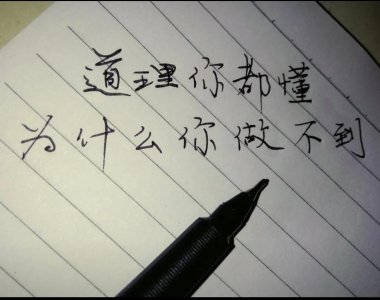 道理你都懂
为什么你做不到